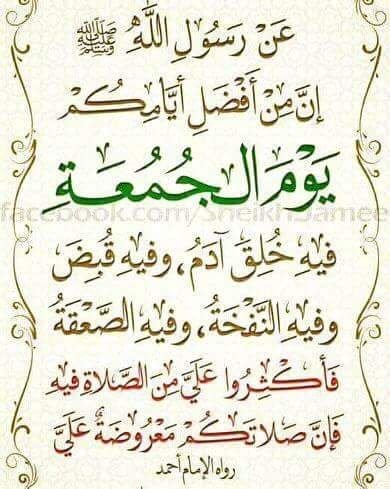 عَنْ رَسُولِ اللَّهِ ﷺ
إِنَّ مِنْ أَفْضَلِ أَيَّامِكُمْ
يَوْمَ الْجُمُعَةِ
facebook.com/SheikhJamee
فِيهِ خُلِقَ آدَمُ، وَفِيهِ قُبِضَ
وَفِيهِ النَّفْخَةُ، وَفِيهِ الصَّعْقَةُ
فَأَكْثِرُوا عَلَيَّ مِنَ الصَّلَاةِ فِيهِ
فَإِنَّ صَلَاتَكُمْ مَعْرُوضَةٌ عَلَيَّ
رواه الإمام أحمد